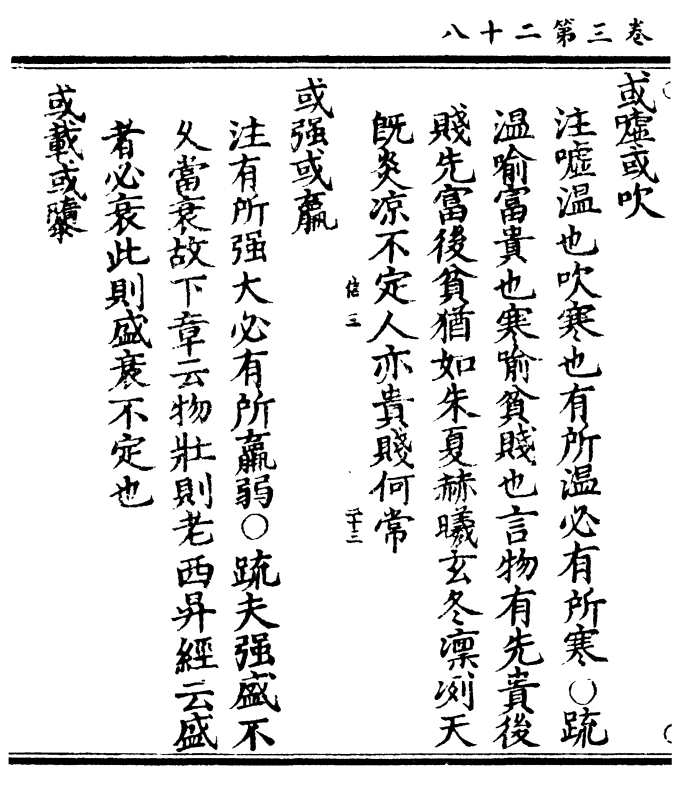 卷三第二十八
或噓或吹
注噓温也吹寒也有所温必有所寒〇疏
温喻富貴也寒喻貧賤也言物有先貴後
賤先富後貧猶如朱夏赫曦玄冬凛冽天
既炎凉不定人亦貴賤何常
信三
三十三
或强或羸
注有所强大必有所羸弱〇疏夫强盛不
久當衰故下章云物壯則老西昇經云盛
者必衰此則盛衰不定也
或載或隳